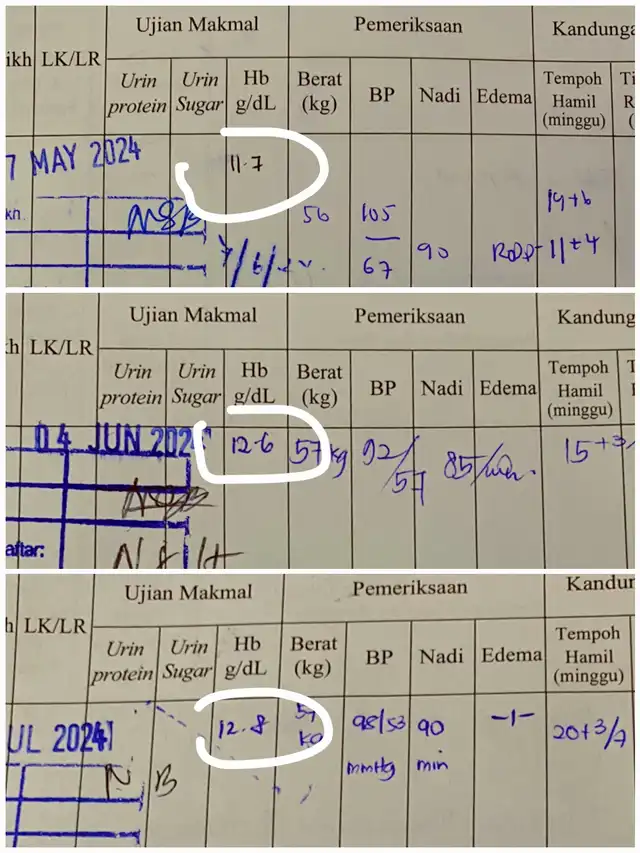 Ujian Makmal Pemeriksaan Kandunga
ikh LK/LR Urin protein Urin Sugar Hb g/dL Berat (kg) BP Nadi Edema Tempoh Hamil (minggu)
7 MAY 2024 11.7
19+6
kh. 56 105
67 90 11+4
Ujian Makmal Pemeriksaan Kandung
h LK/LR Urin protein Urin Sugar Hb g/dL Berat (kg) BP Nadi Edema Tempoh Hamil (minggu)
04 JUN 202 12.6 57 kg 92/57 85/min. 15+3
aftar:
Ujian Makmal Pemeriksaan Kandur
h LK/LR Urin protein Urin Sugar Hb g/dL Berat (kg) BP Nadi Edema Tempoh Hamil (minggu)
UL 2024 12.8 kg 98/53 mmHg 90 min -1- 20+3/7
N B